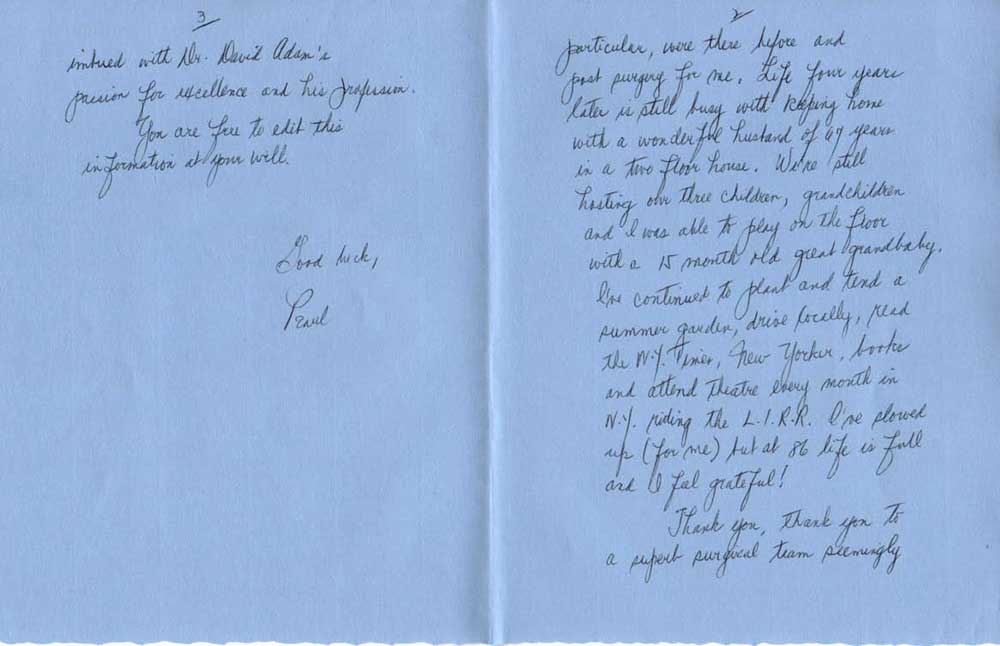 2
particular, were there before and
post surgery for me. Life four years
later is still busy with keeping home
with a wonderful husband of years
in a two floor house. We're still
hosting our three children, grandchildren
and I was able to play on the floor
with a 15 month old great grandbaby.
I've continued to plant and tend a
summer garden, drive locally, read
the N.Y. Times, New Yorker, books
and attend theatre every month in
N.Y. riding the L.I.R.R. I've slowed
up (for me) but at 86 life is full
and I feel grateful!
Thank you, thank you to
a superb surgical team seemingly
3
imbued with Dr. David Adam's
passion for excellence and his profession.
You are free to edit this
information at your will.
Good luck,
Pearl